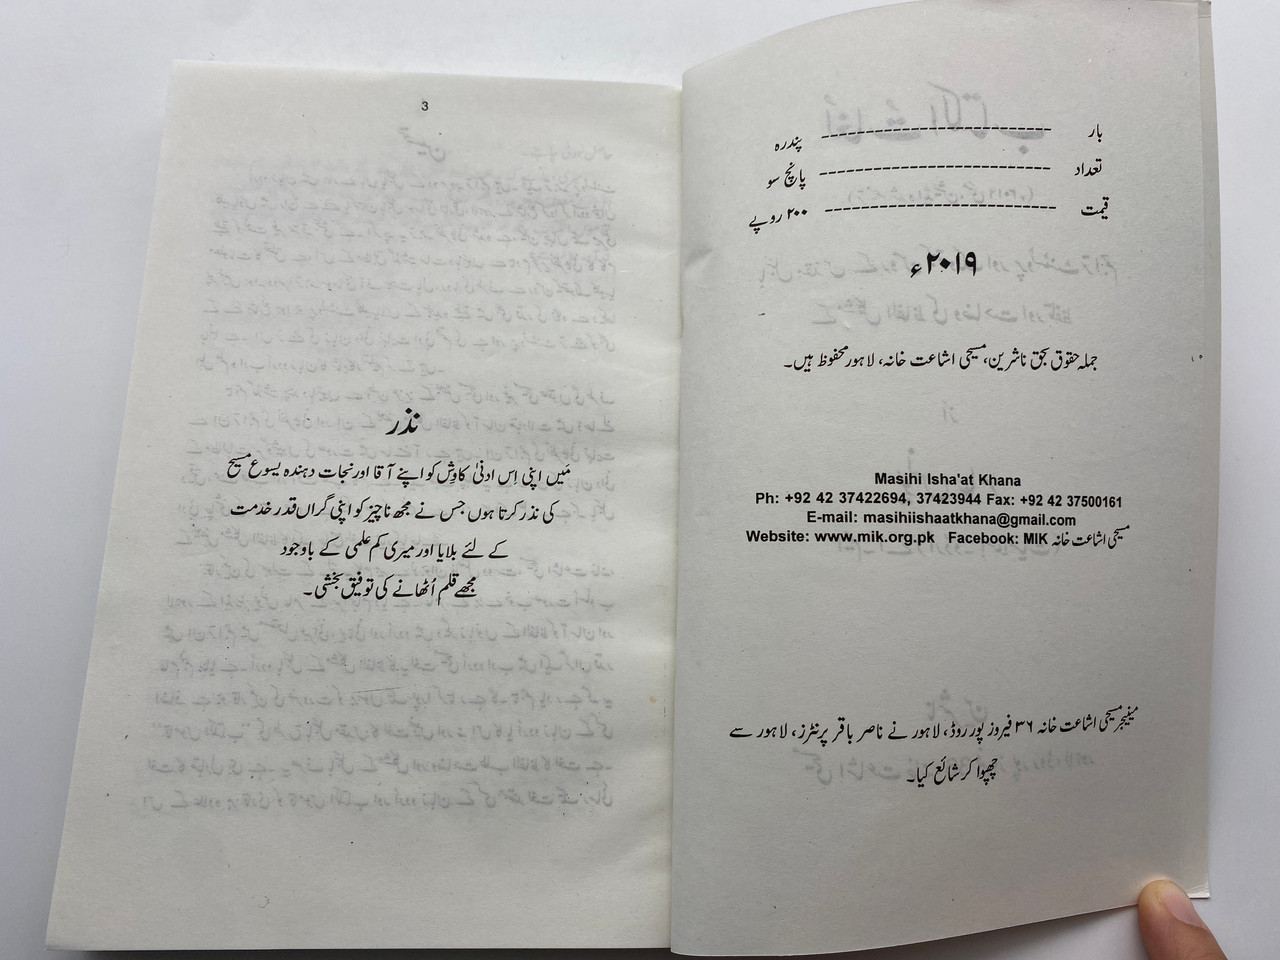 بار -------------------------- پندرہ
تعداد -------------------------- پانچ سو
قیمت -------------------------- ۲۰۰ روپے
۲۰۱۹ء
جملہ حقوق بحق ناشرین، مسیحی اشاعت خانہ، لاہور محفوظ ہیں۔
Masihi Isha'at Khana
Ph: +92 42 37422694, 37423944 Fax: +92 42 37500161
E-mail: masihiishaatkhana@gmail.com
Website: www.mik.org.pk Facebook: MIK مسیحی اشاعت خانہ
مینیجر مسیحی اشاعت خانہ ۳۶ فیروز پور روڈ، لاہور نے ناصر باقر پرنٹرز، لاہور سے
چھپوا کر شائع کیا۔
3
نذر
مَیں اپنی اِس ادنیٰ کاوِش کو اپنے آقا اور نجات دہندہ یسوع مسیح
کی نذر کرتا ہوں جس نے مجھ ناچیز کو اپنی گراں قدر خدمت
کے لئے بلایا اور میری کم علمی کے باوجود
مجھے قلم اُٹھانے کی توفیق بخشی۔